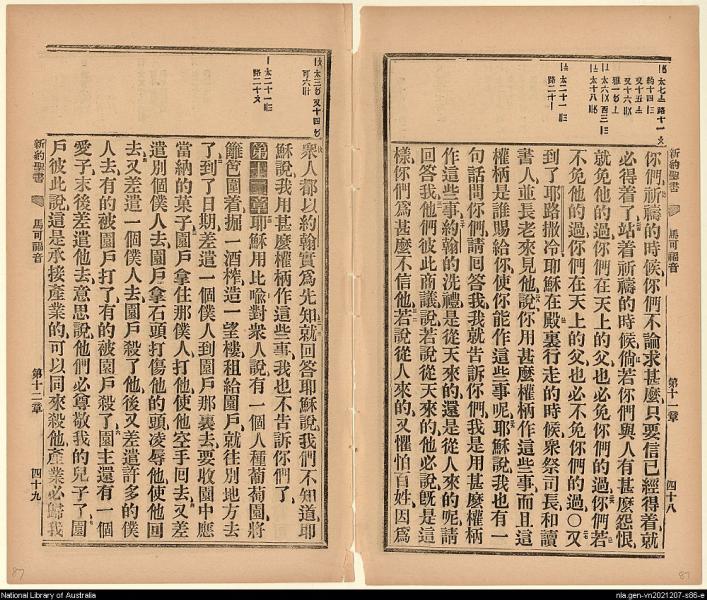 新約聖書
馬可福音
第十一章
四十八
你們祈禱的時候你們不論求甚麼只要信已經得着就
必得着了站着祈禱的時候倘若你們與人有甚麼怨恨
就免他的過你們在天上的父也必免你們的過你們若
不免他的過你們在天上的父也必不免你們的過○又
到了耶路撒冷耶穌在殿裏行走的時候衆祭司長和讀
書人並長老來見他說你用甚麼權柄作這些事而且這
權柄是誰賜給你使你能作這些事呢耶穌說我也有一
句話問你們請回答我我就告訴你們我是用甚麼權柄
作這些事約翰的洗禮是從天來的還是從人來的呢請
回答我他們彼此商議說若說從天來的他必說旣是這
樣你們爲甚麼不信他若說從人來的又懼怕百姓因爲
衆人都以約翰實爲先知就回答耶穌說我們不知道耶
穌說我用甚麼權柄作這些事我也不告訴你們了
第十二章耶穌用比喻對衆人說有一個人種葡萄園將
籬笆圍着掘一酒榨造一望樓租給園戶就往別地方去
了到了日期差遣一個僕人到園戶那裏去要收園中應
當納的菓子園戶拿住那僕人打他使他空手回去又差
遣別個僕人去園戶拿石頭打傷他的頭凌辱他使他回
去又差遣一個僕人去園戶殺了他後又差遣許多的僕
人去有的被園戶打了有的被園戶殺了園主還有一個
愛子末後差遣他去意思說他們必尊敬我的兒子了園
戶彼此說這是承接產業的可以同來殺他產業必歸我
新約聖書
馬可福音
第十二章
四十九
87
87
National Library of Australia
nla.gen-vn2021207-s86-e